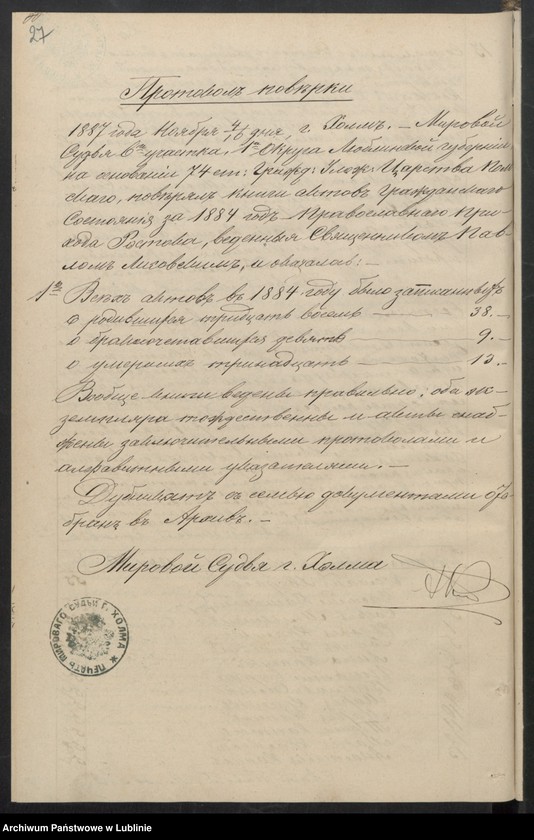 27
Протоколъ повѣрки
1887 года Ноября 4/16 дня, г. Холмъ. – Мировой
Судья 6го участка, 1го Округа Люблинской губерніи
на основаніи 74 ст: Гражд: Улож: Царства Поль-
скаго, повѣрялъ книги актовъ Гражданскаго
Состоянія за 1884 годъ Православнаго При-
хода Ростока, веденныя Священникомъ Пав-
ломъ Лисовскимъ, и оказалось: –
1го Всѣхъ актовъ въ 1884 году было записанныхъ
о родившихся тридцать восемь — 38. –
о бракосочетавшихся девять — 9. –
о умершихъ тринадцать — 13. –
Вообще книги ведены правильно, оба эк-
земпляра тождественны и акты снаб-
жены заключительными протоколами и
алфавитными указателями. –
Дубликатъ съ семью документами ото-
бранъ въ Архивъ. –
Мировой Судья г. Холма
ПЕЧАТЬ МИРОВАГО СУДЬИ Г. ХОЛМА
Archiwum Państwowe w Lublinie